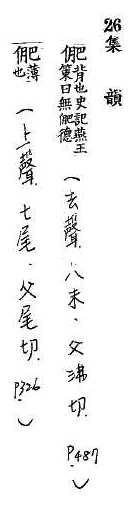 26集韻
俷背也史記燕王策曰無俷德(去聲.八未.父沸切.P.487)
俷薄也(上聲.七尾.父尾切.P326.)